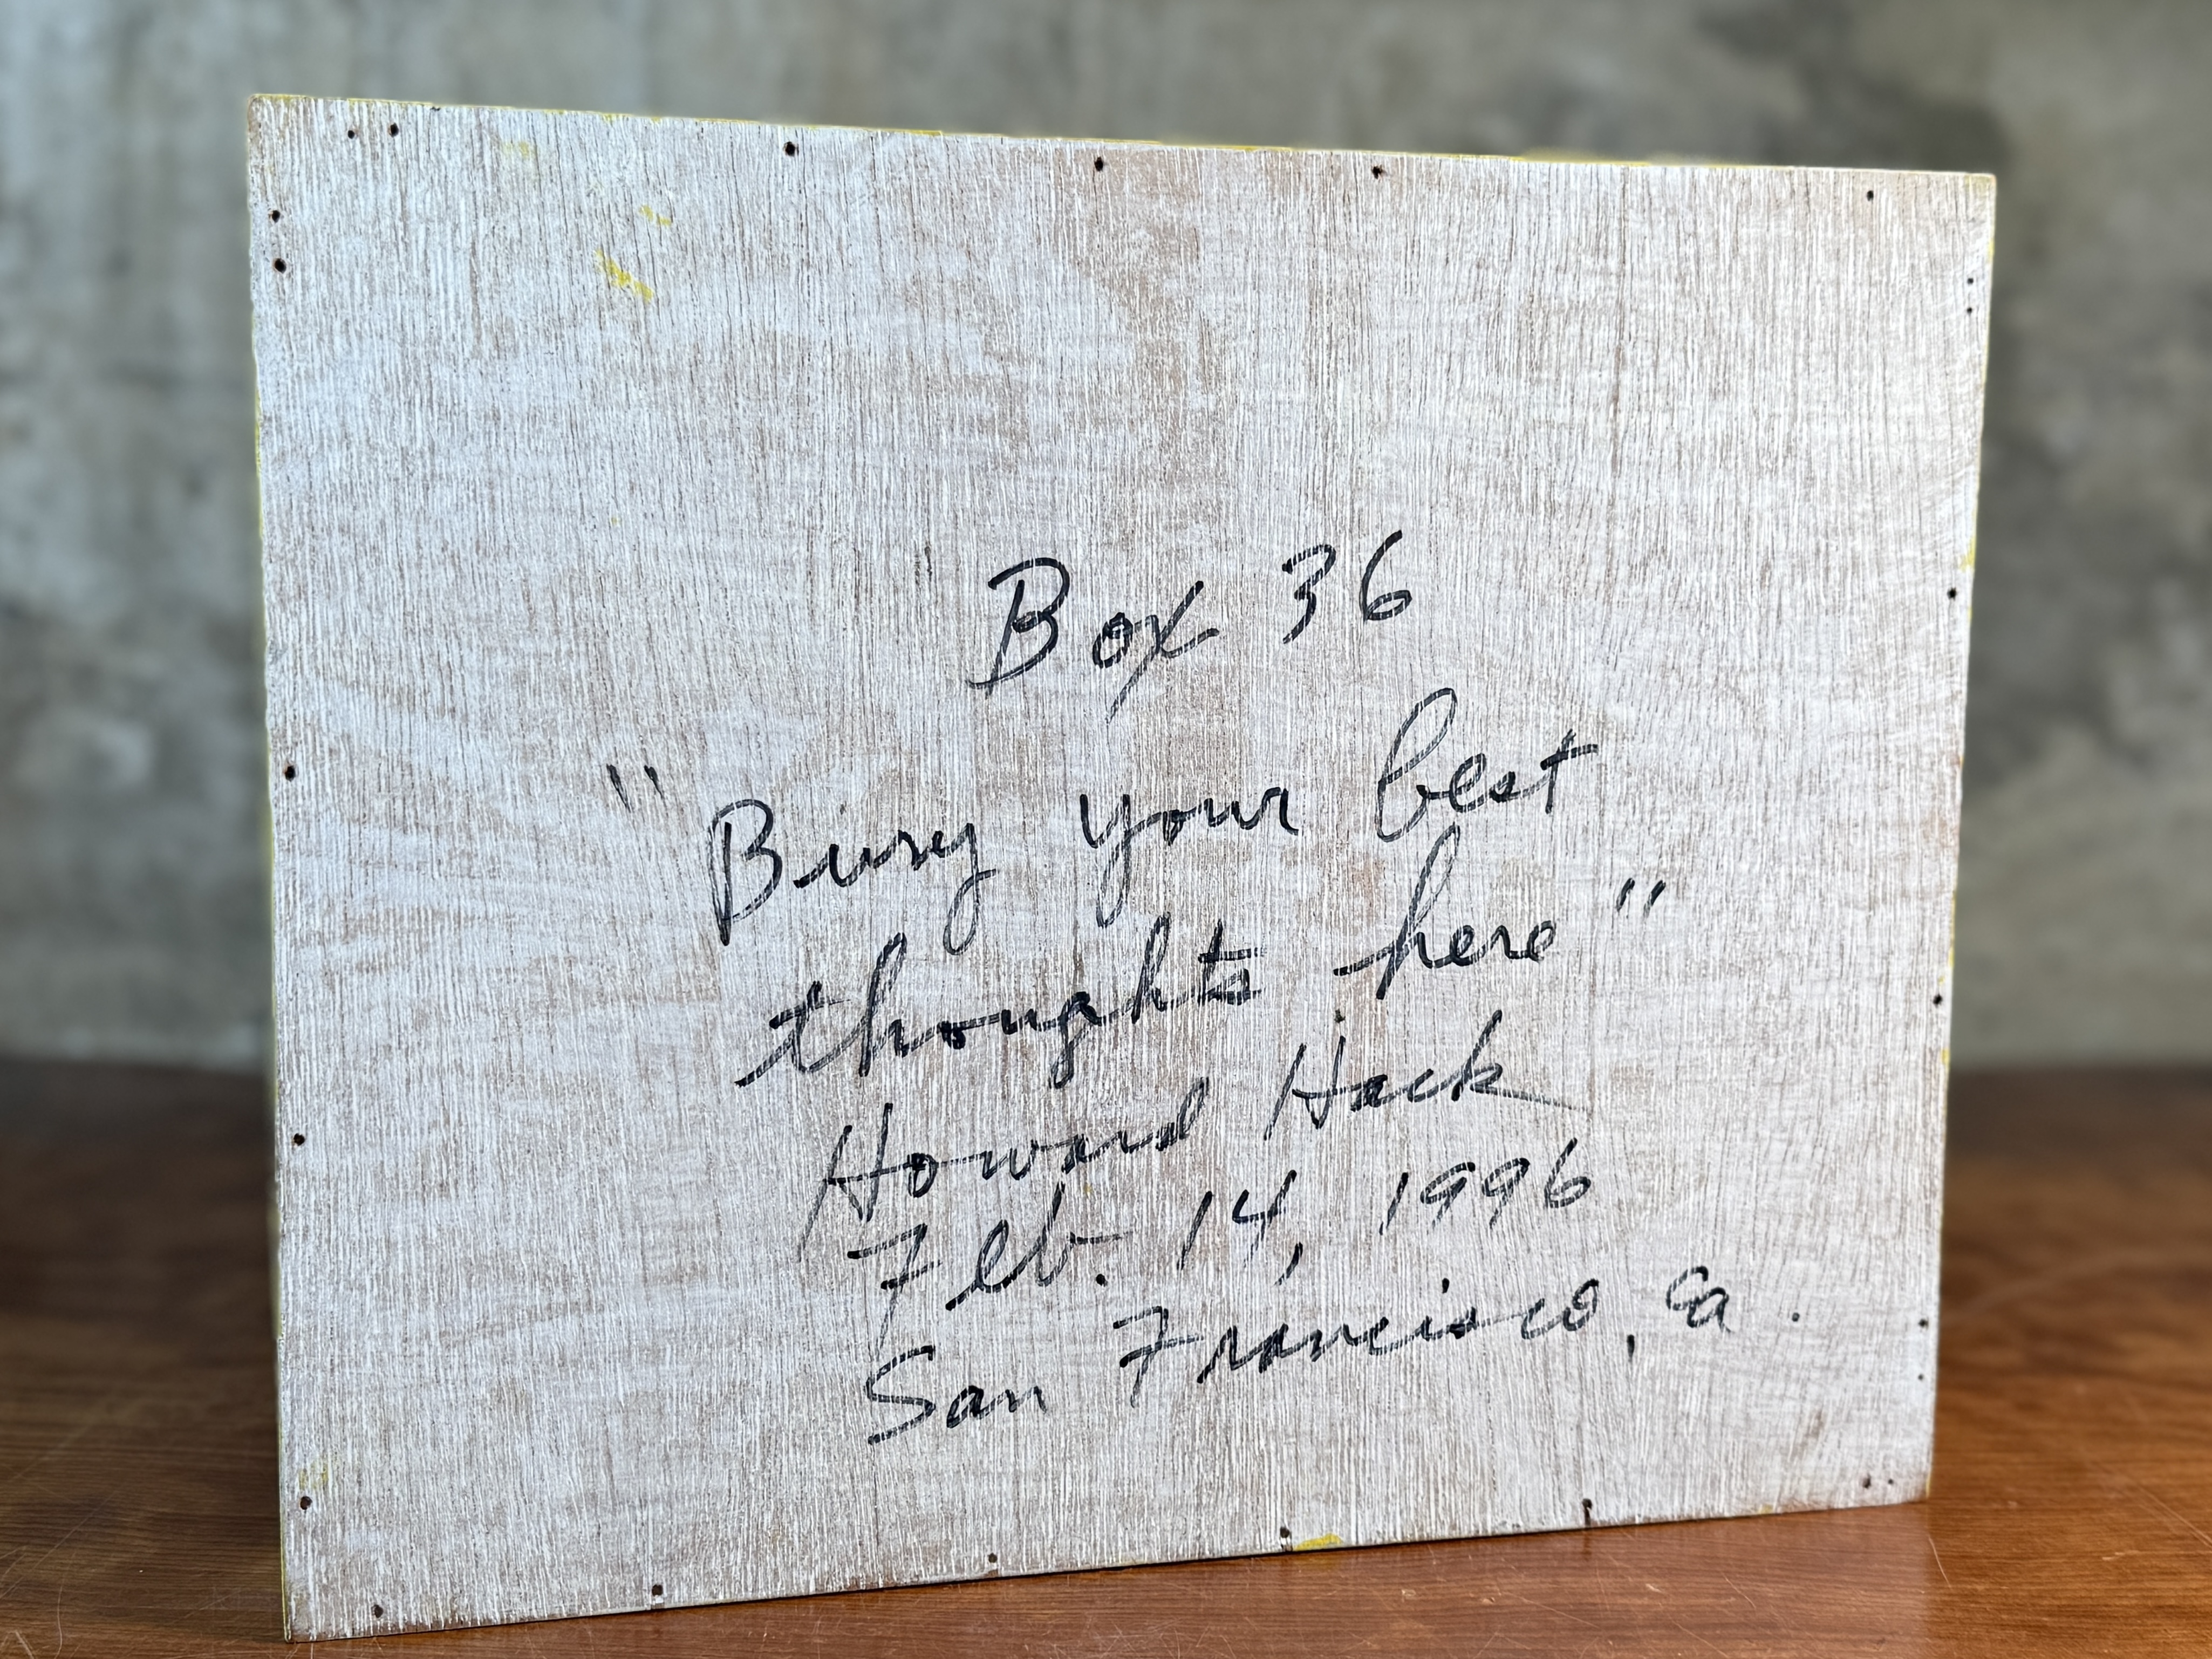 Box 36
"Bury your best
thoughts here"
Howard Hack
Feb. 14, 1996
San Francisco, Ca.